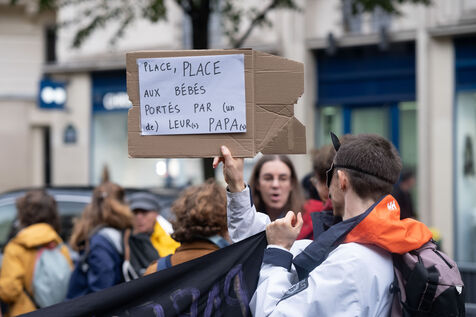 PLACE, PLACE
AUX BÉBÉS
PORTÉS PAR (un
de) LEUR(s) PAPA(s)